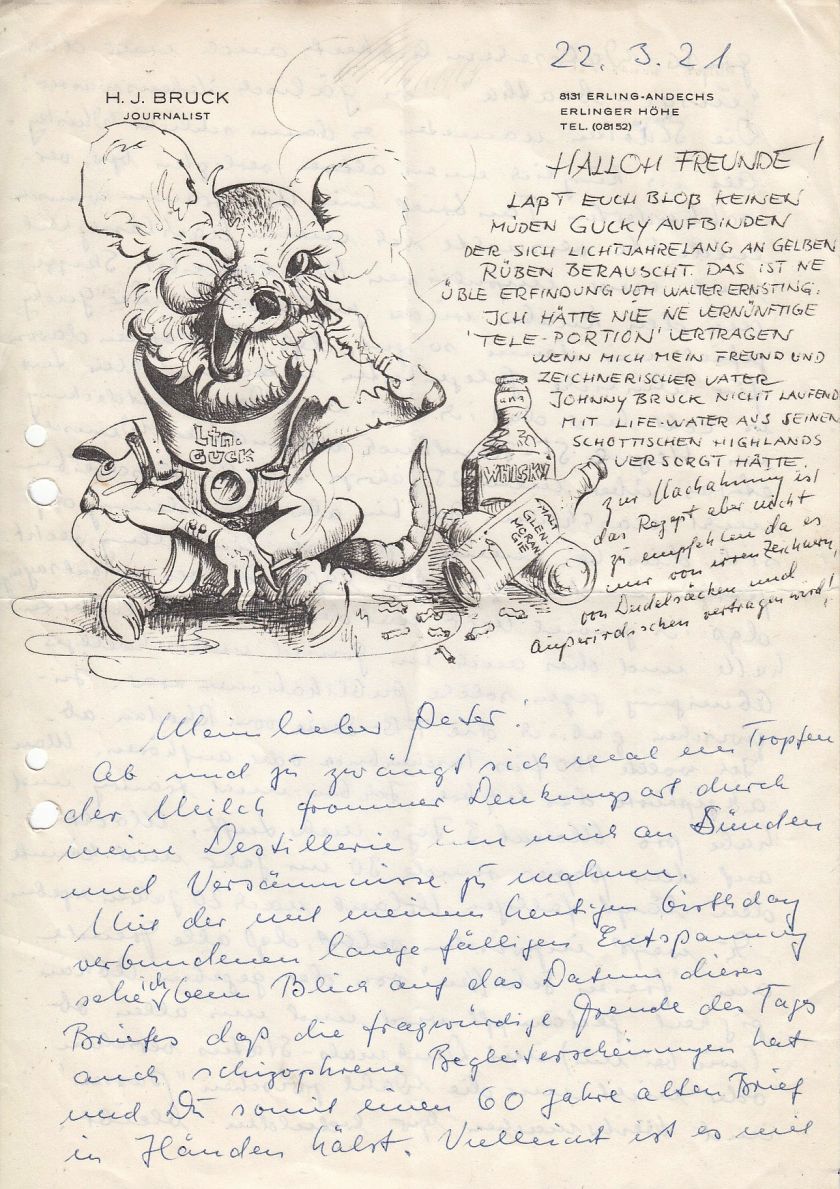 22. 3. 21
H. J. BRUCK
JOURNALIST
8131 ERLING-ANDECHS
ERLINGER HÖHE
TEL. (08152)
HALLOH FREUNDE!
LAßT EUCH BLOß KEINEN
MÜDEN GUCKY AUFBINDEN
DER SICH LICHTJAHRELANG AN GELBEN
RÜBEN BERAUSCHT. DAS IST NE
ÜBLE ERFINDUNG VOM WALTER ERNSTING.
ICH HÄTTE NIE NE VERNÜNFTIGE
'TELE-PORTION' VERTRAGEN
WENN MICH MEIN FREUND UND
ZEICHNERISCHER VATER
JOHNNY BRUCK NICHT LAUFEND
MIT LIFE-WATER AUS SEINEN
SCHOTTISCHEN HIGHLANDS
VERSORGT HÄTTE.
zur Nachahmung ist
das Rezept aber nicht
zu empfehlen da es
nur von irren Zeichnern,
von Dudelsäcken und
außerirdischen vertragen wird!
LTN.
GUCK
WHISKY
MALT
GLEN-
MORAN
GIE
Mein lieber Peter!
Ab und zu zwängt sich mal ein Tropfen
der Milch frommer Denkungsart durch
meine Destillerie um mich an Sünden
und Versäumnisse zu mahnen.
Mit der, mit meinem heutigen birthday
verbundenen lange fälligen Entspannung
sehe ich beim Blick auf das Datum dieses
Briefes daß die fragwürdige Freude des Tages
auch schizophrene Begleiterscheinungen hat
und Du somit einen 60 Jahre alten Brief
in Händen hälst. Vielleicht ist es mit